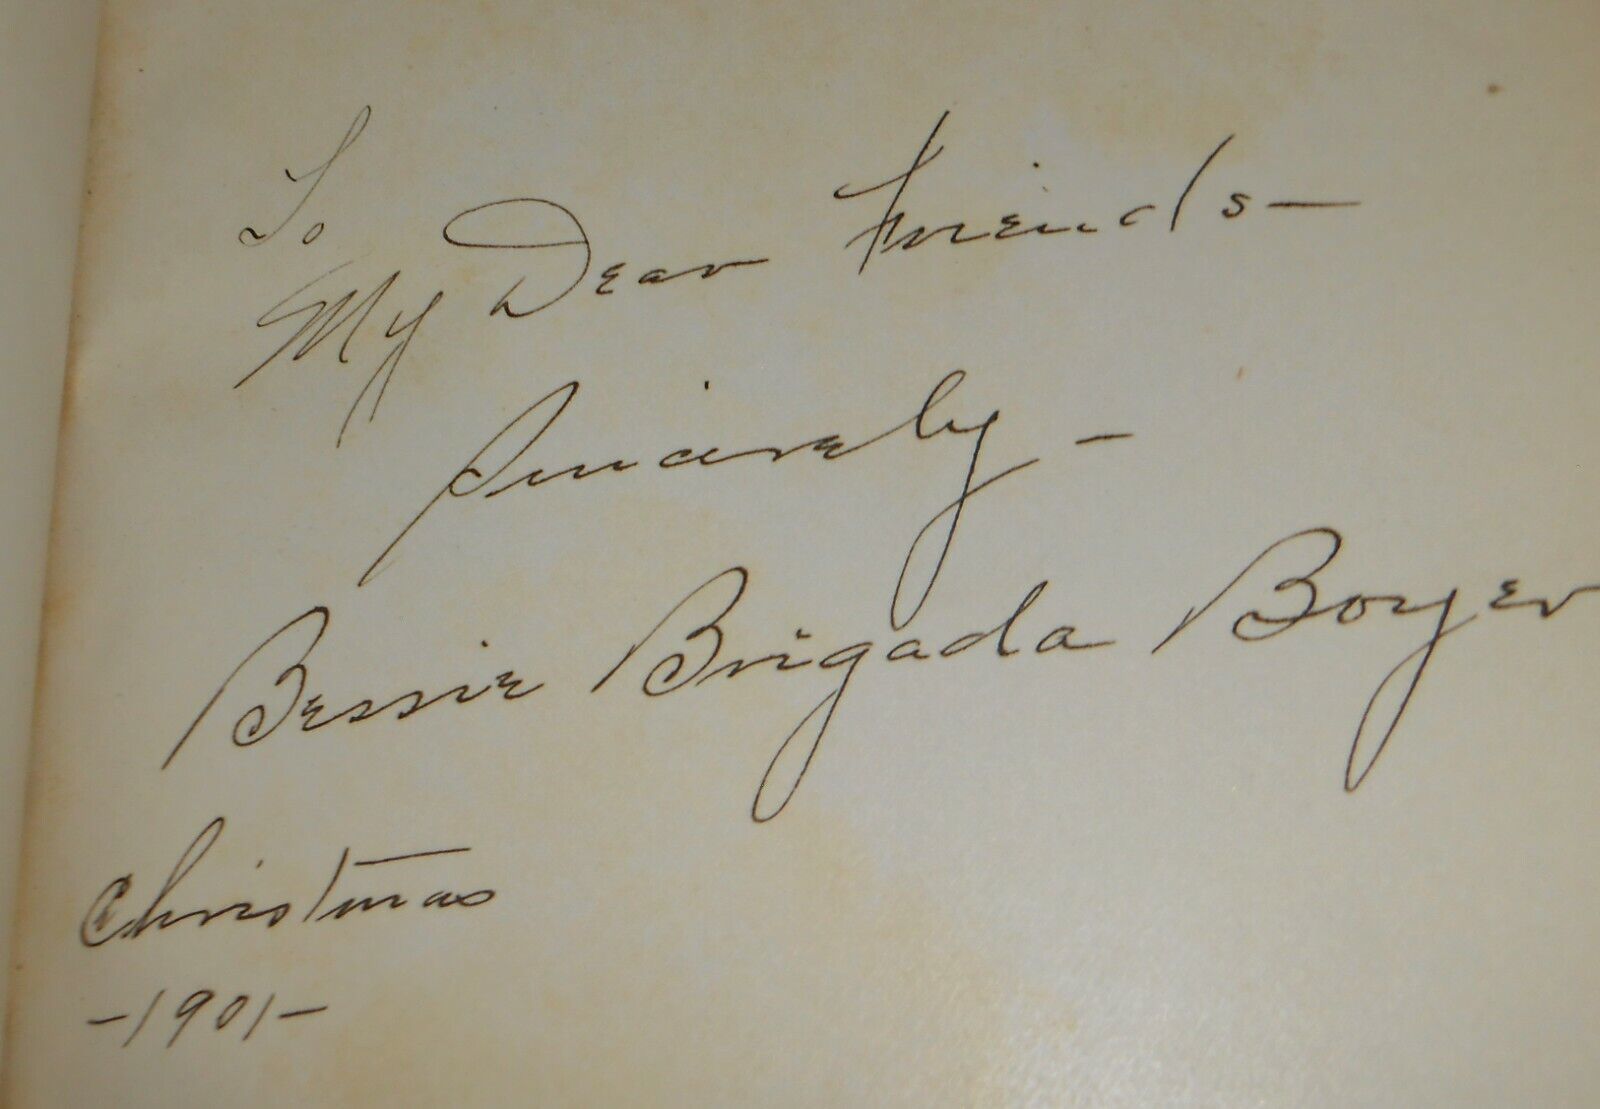 To
My Dear Friends—
Sincerely—
Bessie Brigada Boyer
Christmas
-1901-